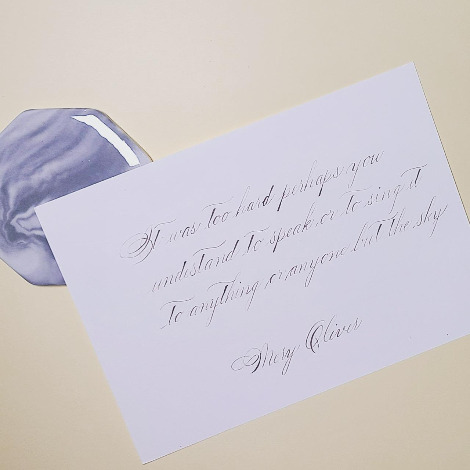 It was too hard perhaps you
understand to speak or to sing it
to anything or anyone but the sky
Mary Oliver